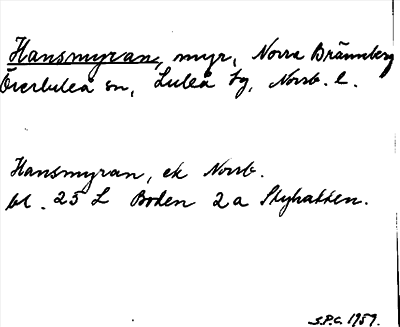 Hansmyran, myr, Norra Brännberg
Överluleå sn, Luleå tg, Norrb. l.
Hansmyran, ek Norrb.
bl. 25 L Boden 2a Slyhatten.
S.P.C. 1959.